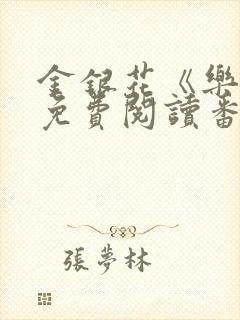 金銀花《樂
免費閱讀番
張夢林